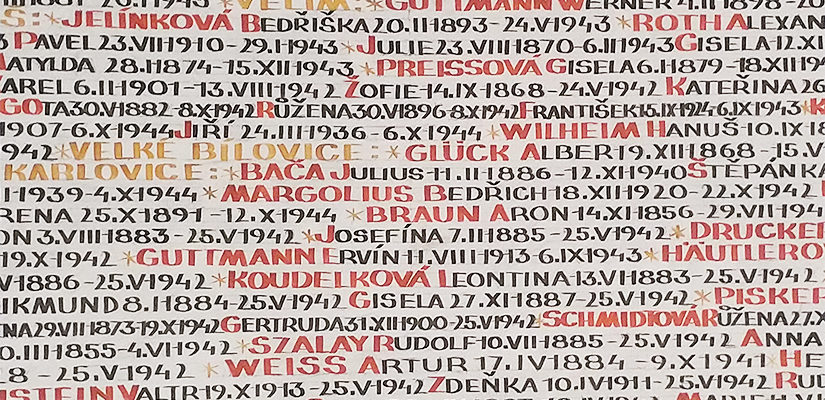 VELIM: * GUTTMANN WERNER
S: * JELÍNKOVÁ BEDŘIŠKA 20.II1893-24.V1943 * ROTH ALEXAN
PAVEL 23.VII1910-29.I1943 * JULIE 23.VIII1870-6.II1943 GISELA 12.XI
MATYLDA 28.II1874-15.XII1943 * PREISSOVÁ GISELA 6.II1879-18.XII193
KAREL 6.III1901-13.VIII1942 ŽOFIE 14.IX1868-24.V1942 KATEŘINA 26
GOTA 30.V1882-8.X1942 RŮŽENA 30.VI1896-8.X1942 FRANTIŠEK 15.IX1924-6.IX1943 *
1907-6.X1944 JIŘÍ 24.III1936-6.X1944 * WILHEIM HANUŠ 10.IX18
942 * VELKÉ BÍLOVICE: * GLÜCK ALBER 19.XII1868-15.V
KARLOVICE: * BAČA JULIUS 11.II1886-12.XI1940 ŠTĚPÁNKA
II1939-4.X1944 * MARGOLIUS BEDŘICH 18.XII1920-22.X1942
RENA 25.X1891-12.X1944 * BRAUN ARON 14.XI1856-29.VII194
ON 3.VIII1883-25.V1942 * JOSEFÍNA 7.II1885-25.V1942 * DRUCKER
19.X1942 * GUTTMANN ERVÍN 11.VIII1913-6.IX1943 * HÄUTLEROV
V1886-25.V1942 * KOUDELKOVÁ LEONTINA 13.VI1883-25.V1942
IKMUND 8.II1884-25.V1942 GISELA 27.XI1887-25.V1942 * PISKER
NA 29.VII1873-19.X1942 GERTRUDA 31.XII1900-25.V1942 * SCHMIDTOVÁ RŮŽENA 27.X
0.III1855-4.VI1942 * SZALAY RUDOLF 10.VII1885-25.V1942 ANNA
8-25.V1942 * WEISS ARTUR 17.IV1884-9.X1941 * HE
NSTEIN VALTR 19.X1913-25.V1942 ZDEŇKA 10.IV1911-25.V1942 RUD